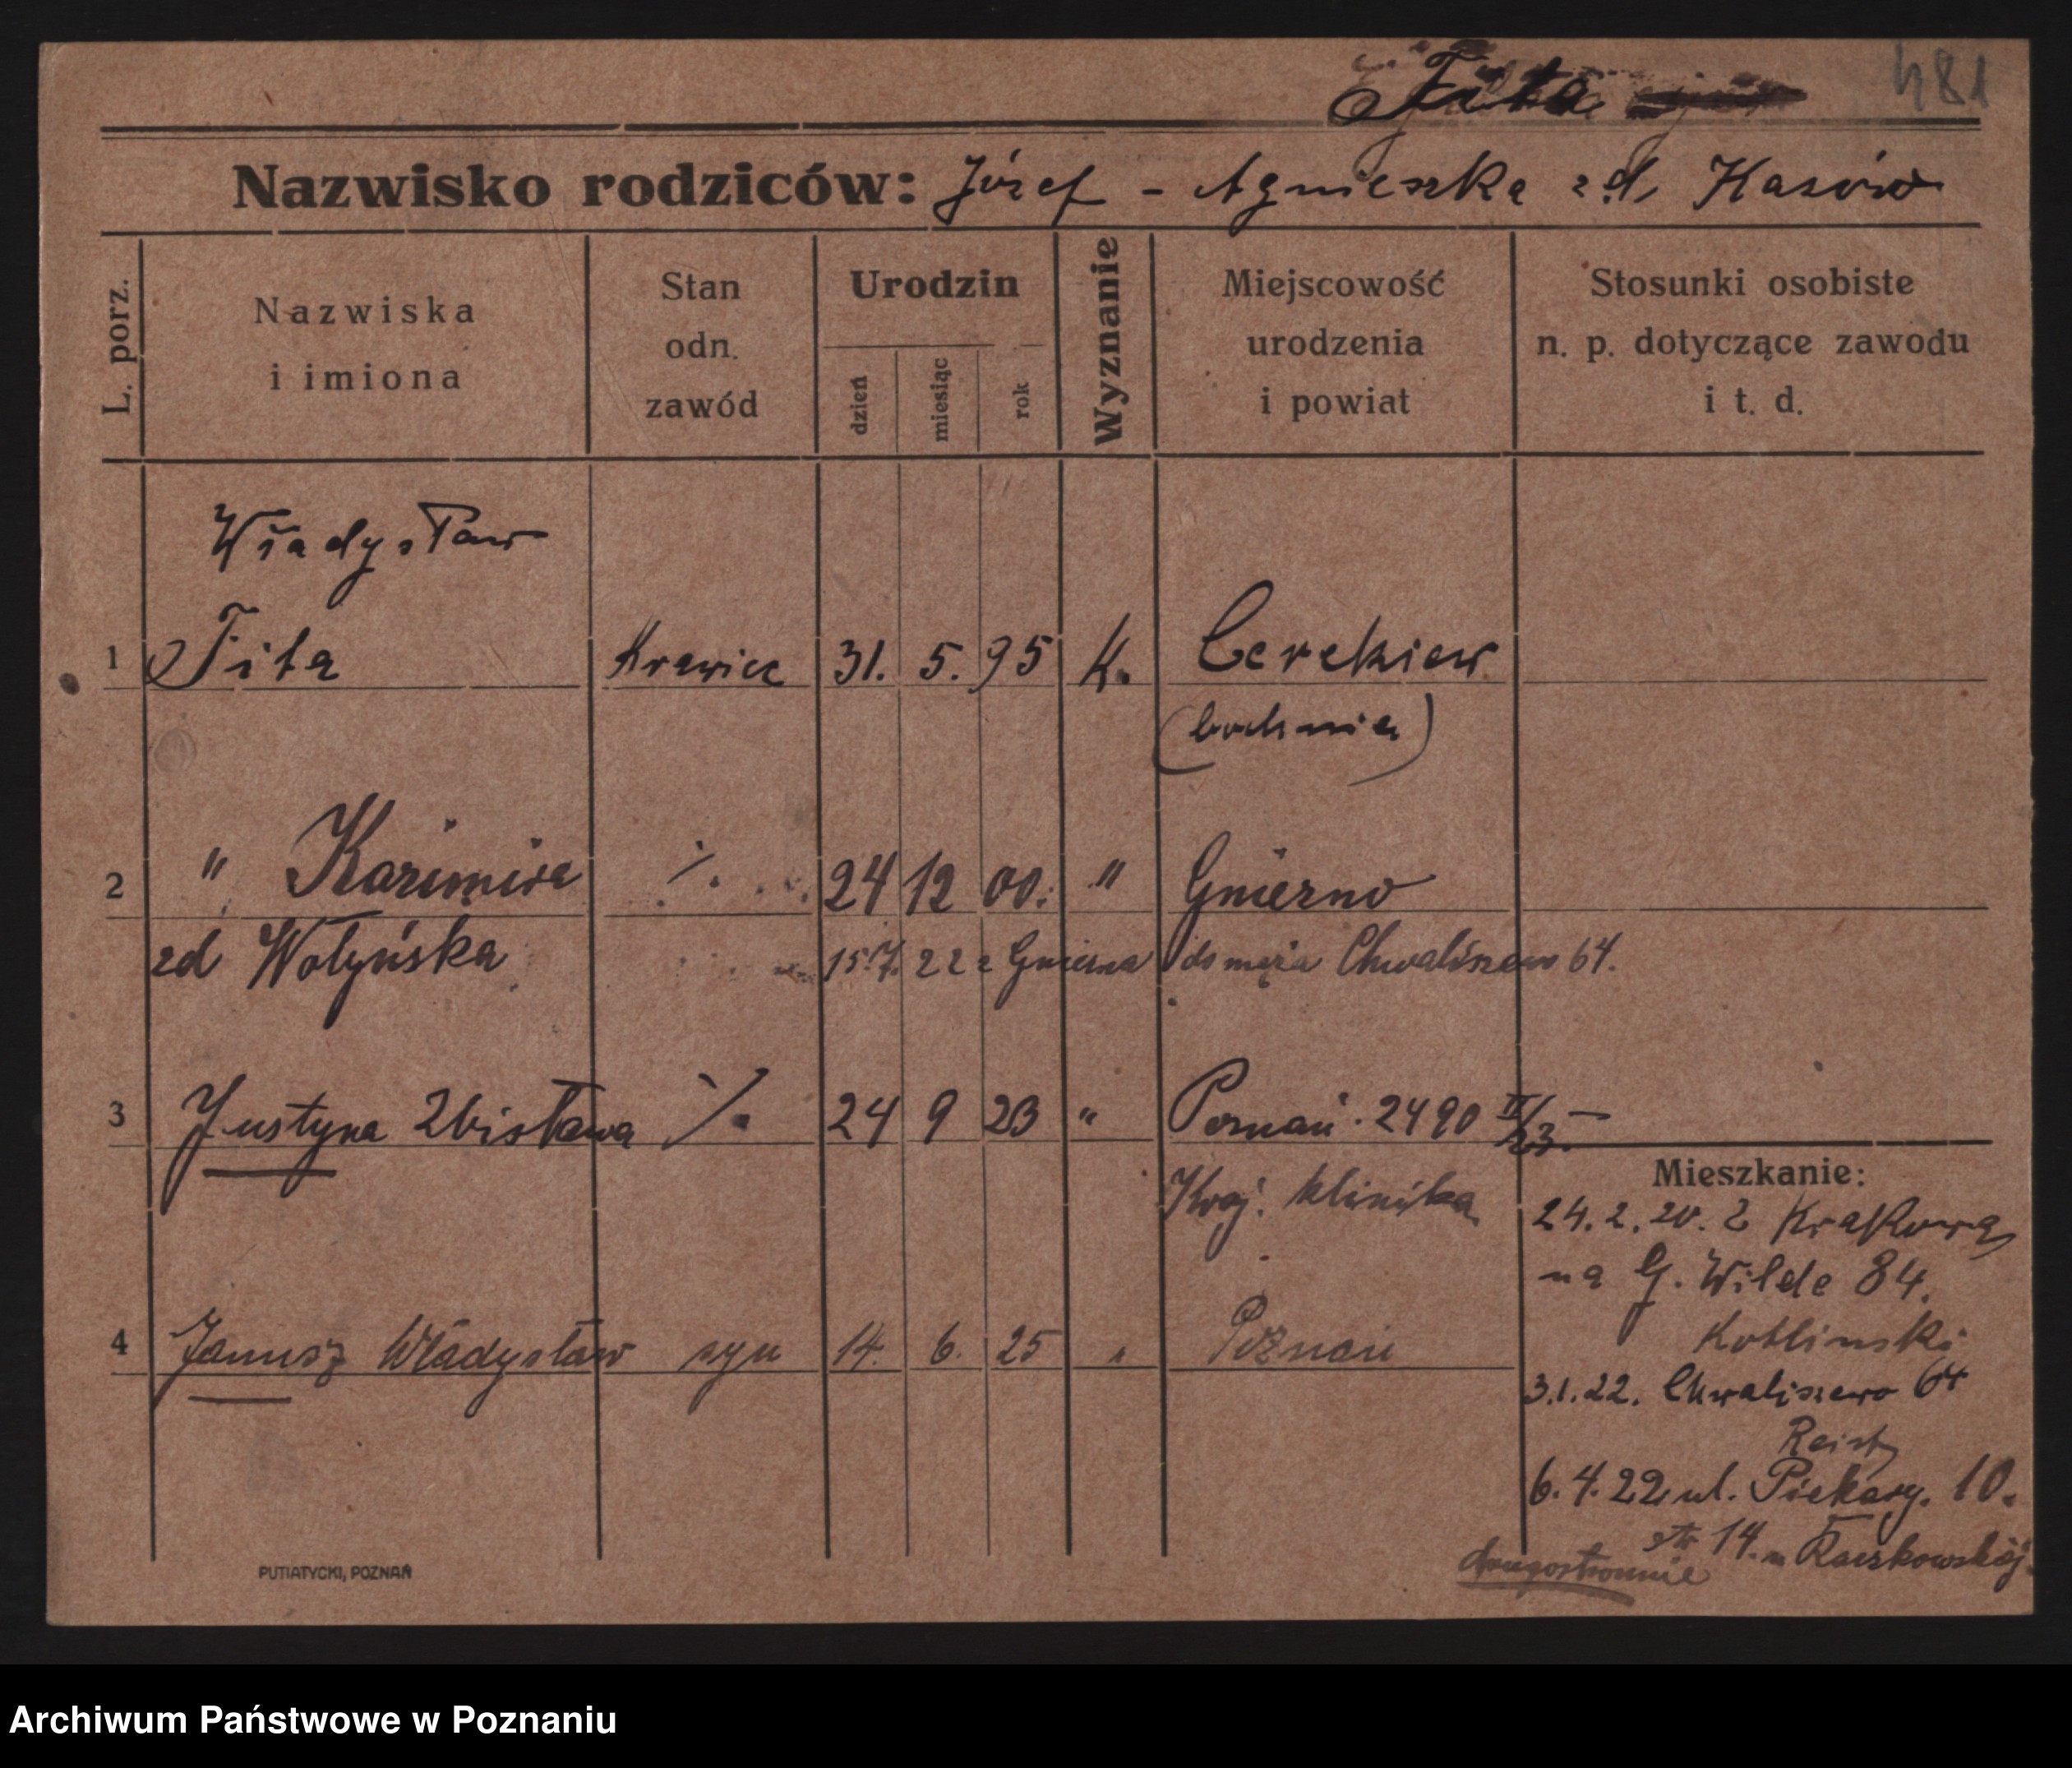 Fita
481
Nazwisko rodziców: Józef - Agnieszka zd. Kasów
L. porz.
Nazwiska
i imiona
Stan
odn.
zawód
Urodzin
dzień
miesiąc
rok
Wyznanie
Miejscowość
urodzenia
i powiat
Stosunki osobiste
n. p. dotyczące zawodu
i t. d.
Władysław
1 Fita Krawiec 31. 5. 95 K. Cerekiew
(bochnia)
2 " Kazimira ./. 24 12 00. " Gniezno
zd Wołyńska 15.7. 22 z Gniezna do męża Chwaliszewo 64.
3 Justyna Zbisława ./. 24 9 23 " Poznań. 2490 II/23.
Kraj. klinika
Mieszkanie:
24. 2. 20. z Krakowa
na G. Wilde 84.
Koblinski
4 Janusz Władysław syn 14. 6. 25 " Poznań
3.1.22. Chwaliszewo 64
6.4.22 ul. Piekary. 10.
14. u Raczkowskiej.
drugostronnie
PUTIATYCKI, POZNAŃ
Archiwum Państwowe w Poznaniu